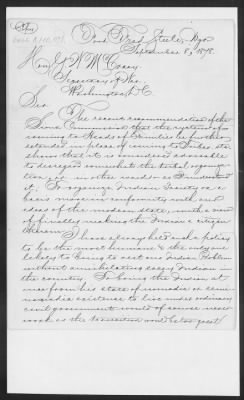 Copy
Camp Fred Steele, Wyo.
September 8, 1878.
Hon. G. W. McCrary
Secretary of War
Washington D.C.
Sir:
The recent recommendation of the
Commission that the system of
issuing to Heads of Families be further
extended in place of issuing to Tribes etc.
shows that it is considered advisable
to disregard somewhat the tribal organiza-
tion or in other words as I understand
it. To organize Indian Society on a
basis more in conformity with our
ideas of the modern state, with a view
of finally making the Indian a citizen
I have always held such a Policy
to be the most humane & the only one
likely to bring to rest our Indian Problem
without annihilating every Indian in
the country. To bring the Indian at
once from his state of nomadic or semi
nomadic existence to live under ordinary
civil government would of course never
work as the transition would be too great